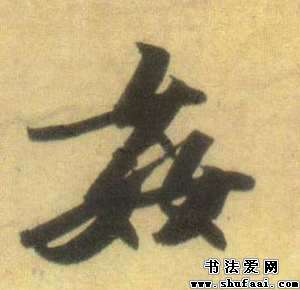 姦
书法爱网
www.shufaai.com